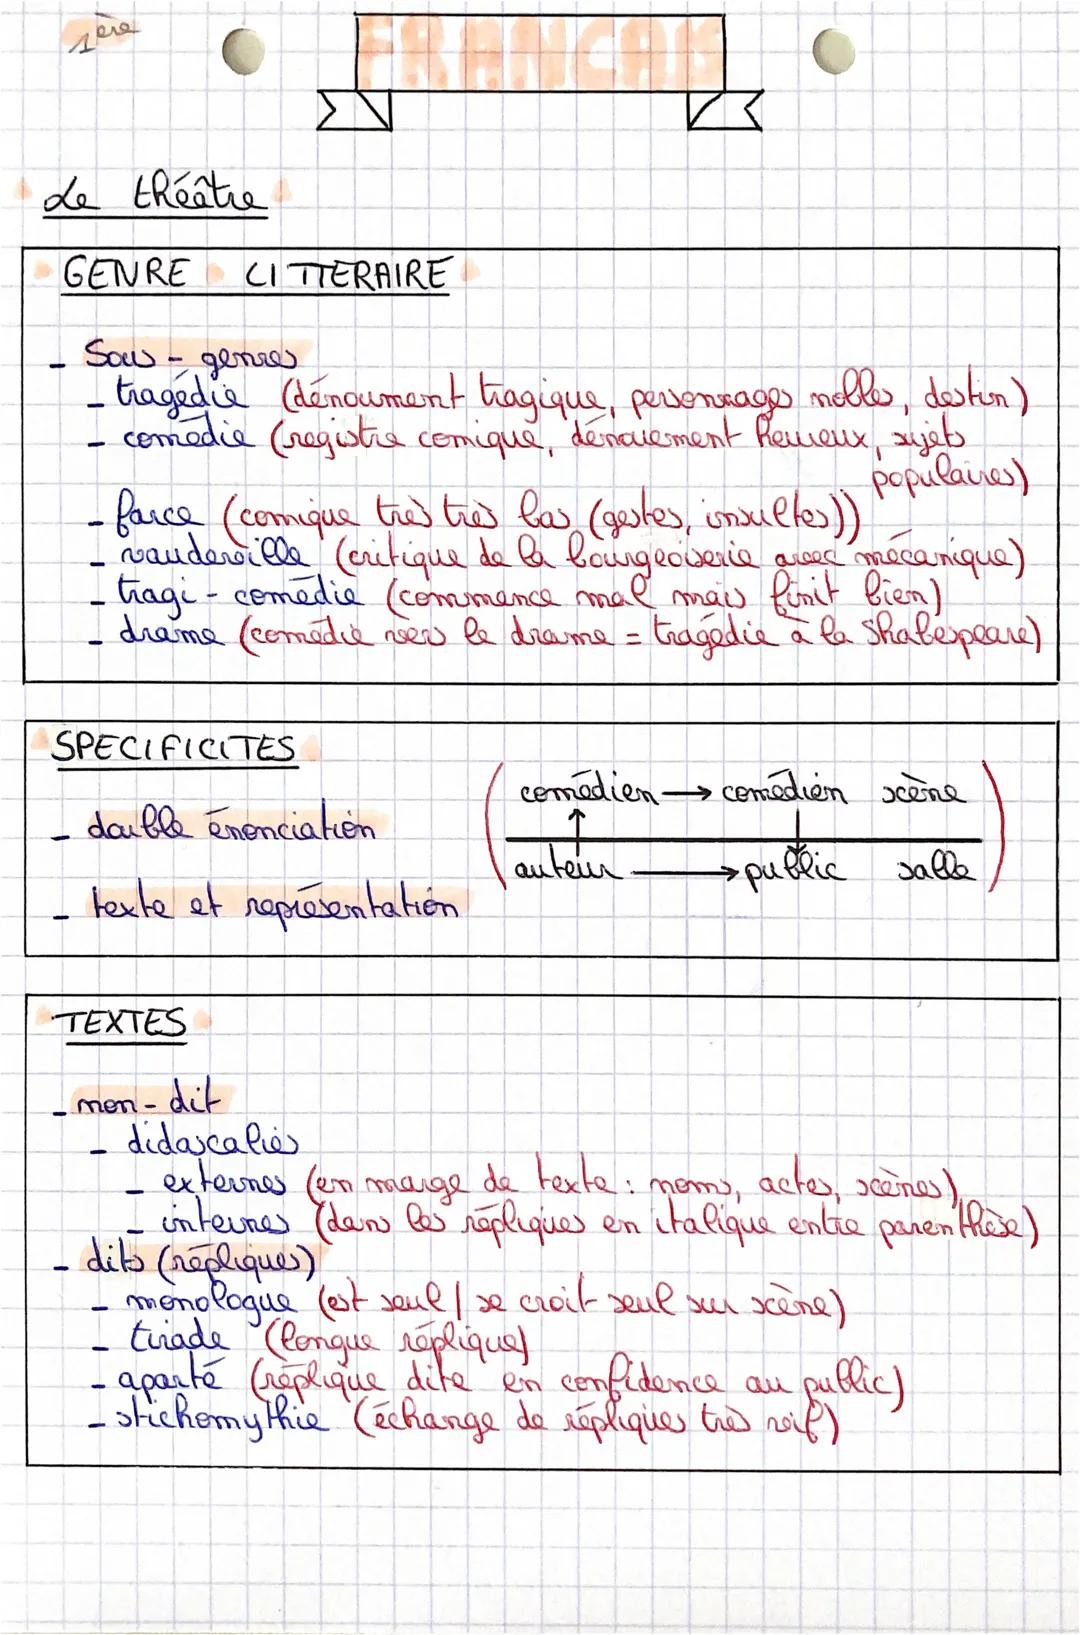 1ère
FRANCAIS
Le théâtre
GENRE LITTERAIRE
- Sous-genres
- tragédie (dénoument tragique, personnages nobles, destin)
- comédie (registre comique, dénouement heureux, sujets
populaires)
- farce (comique très très bas (gestes, insultes))
- vaudeville (critique de la bourgeoiserie avec mécanique)
- tragi-comédie (commence mal mais finit bien)
- drame (comédie vers le drame = tragédie à la Shakespeare)
SPECIFICITES
- double énonciation
comédien → comédien scène
↑ ↓
auteur → public salle
- texte et représentation
TEXTES
- non-dit
- didascalies
- externes (en marge de texte : noms, actes, scènes)
- internes (dans les répliques en italique entre parenthèse)
- dits (répliques)
- monologue (est seul / se croit seul sur scène)
- tirade (longue réplique)
- aparté (réplique dite en confidence au public)
- stichomythie (échange de répliques très vif)